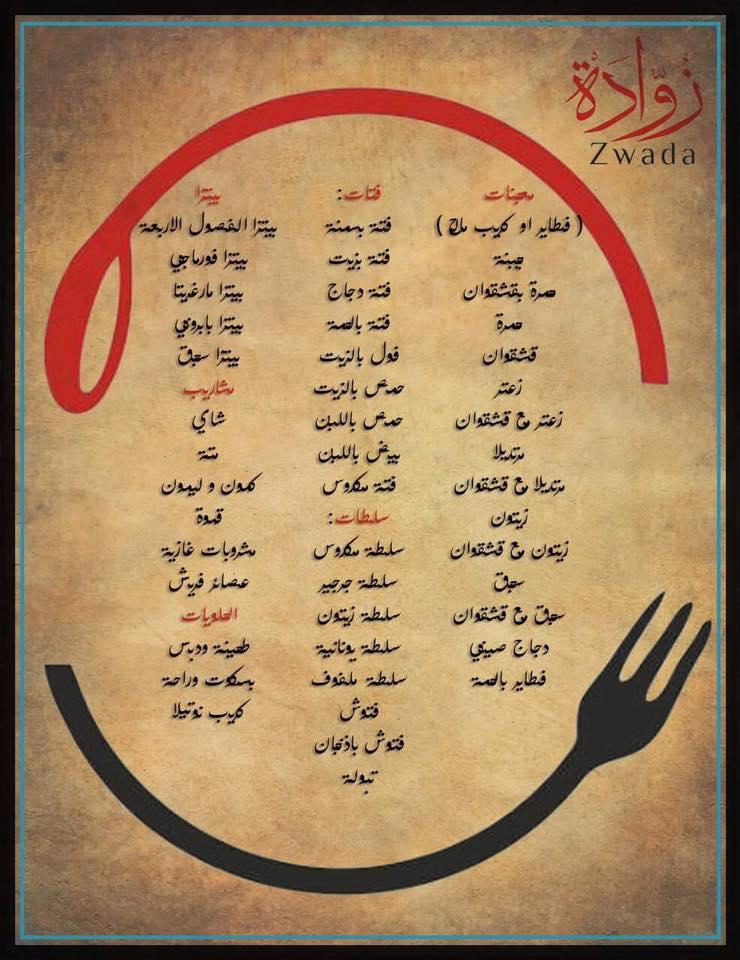 زُوَّادَة
Zwada
معجنات
( فطاير او كريب مالح )
جبنة
حمرة بقشقوان
حمرة
قشقوان
زعتر
زعتر مع قشقوان
مرتديلا
مرتديلا مع قشقوان
زيتون
زيتون مع قشقوان
سجق
سجق مع قشقوان
دجاج صيني
فطاير بالحمة
فتات:
فتة بسمنة
فتة بزيت
فتة دجاج
فتة بالحمة
فول بالزيت
حمص بالزيت
حمص باللبن
بيض باللبن
فتة مكدوس
سلطات:
سلطة مكدوس
سلطة جرجير
سلطة زيتون
سلطة يونانية
سلطة ملفوف
فتوش
فتوش باذنجان
تبولة
بيتزا
بيتزا الفصول الاربعة
بيتزا فورماجي
بيتزا مارغريتا
بيتزا بابروني
بيتزا سجق
مشاريب
شاي
متة
كمون و ليمون
قهوة
مشروبات غازية
عصائر فريش
الحلويات
طحينة ودبس
بسكوت وراحة
كريب نوتيلا